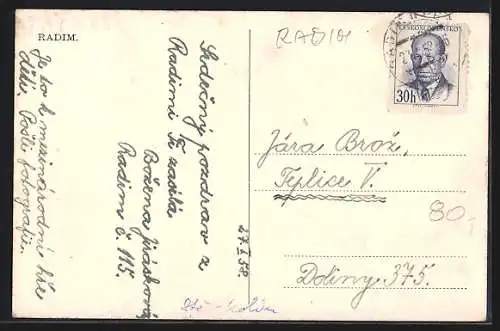 RADIM.
RADIM
ČESKOSLOVENSKO
30h
Srdečný pozdrav z
Radimi Ti zasílá
Božena Jirásková
Radim č. 115.
27. I 58
Je to k mezinárodní hře
dětí. Pošli fotografii.
Jára Brož,
Teplice V.
80,-
Doliny 375.